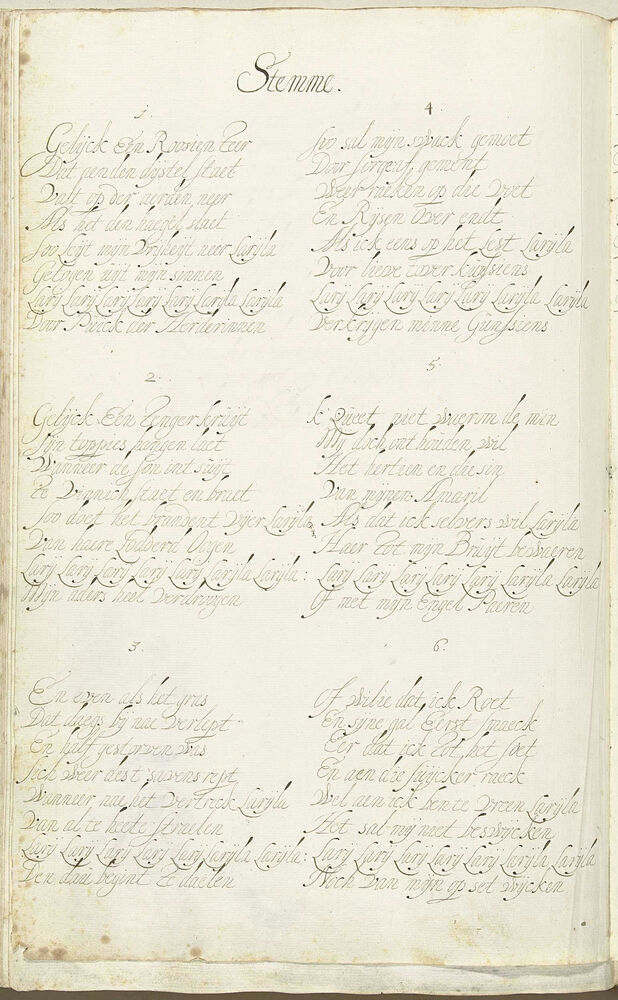 Stemme.
1
Gelijck Een Roosien Teer
Dat aen den distel staet
Valt op der aerden neer
Als het den haegel slaet
Soo leijt mijn Vrijheijt neer Larijla
Getogen uijt mijn sinnen
Larij Larij Larij Larij Larij Larijla Larijla
Door Puick der Herderinnen
2.
Gelijck Een Tenger kruijt
Sijn toppies hangen laet
Wanneer de Son int zuijt
te Vinnich staet en braet
Soo doet het brandent Vijer Larijla
Van haere Oogen
Larij Larij Larij Larij Larij Larijla Larijla:
Mijn aders heel Verdroogen
3.
En even als het gras
Dat daegs bij nae Verlept
En half gestorven was
Sich weer dest savens rept
Wanneer nae het Vertreck Larijla
Van al te heete Straelen
Larij Larij Larij Larij Larij Larijla Larijla:
Den dau begint te daelen
4
Soo sal mijn swack gemoet
Door sorgen gement
Weer raeken op die Voet
En Rijsen Over endt
Als ick eens op het lest Larijla
Voor lieve
Larij Larij Larij Larij Larij Larijla Larijla
Verkrijgen minne Gunssiens
5.
k Queet niet waerom de min
Mij doch ont houden wil
Het hertien en die sin
Van mijnen Amaril
Als dat ick selvers wil Larijla
Haer tot mijn Bruijt bewaeren
Larij Larij Larij Larij Larij Larijla Larijla
Of met mijn Engel Paeren
6.
Of wilje dat ick Roet
En sijne gal Eerst smaeck
Eer dat ick tot het soet
En aen die suijcker raeck
Wel aen ick ben te Vreen Larijla
Het sal mij niet beswijcken
Larij Larij Larij Larij Larij Larijla Larijla
Noch Van mijn op set wijcken